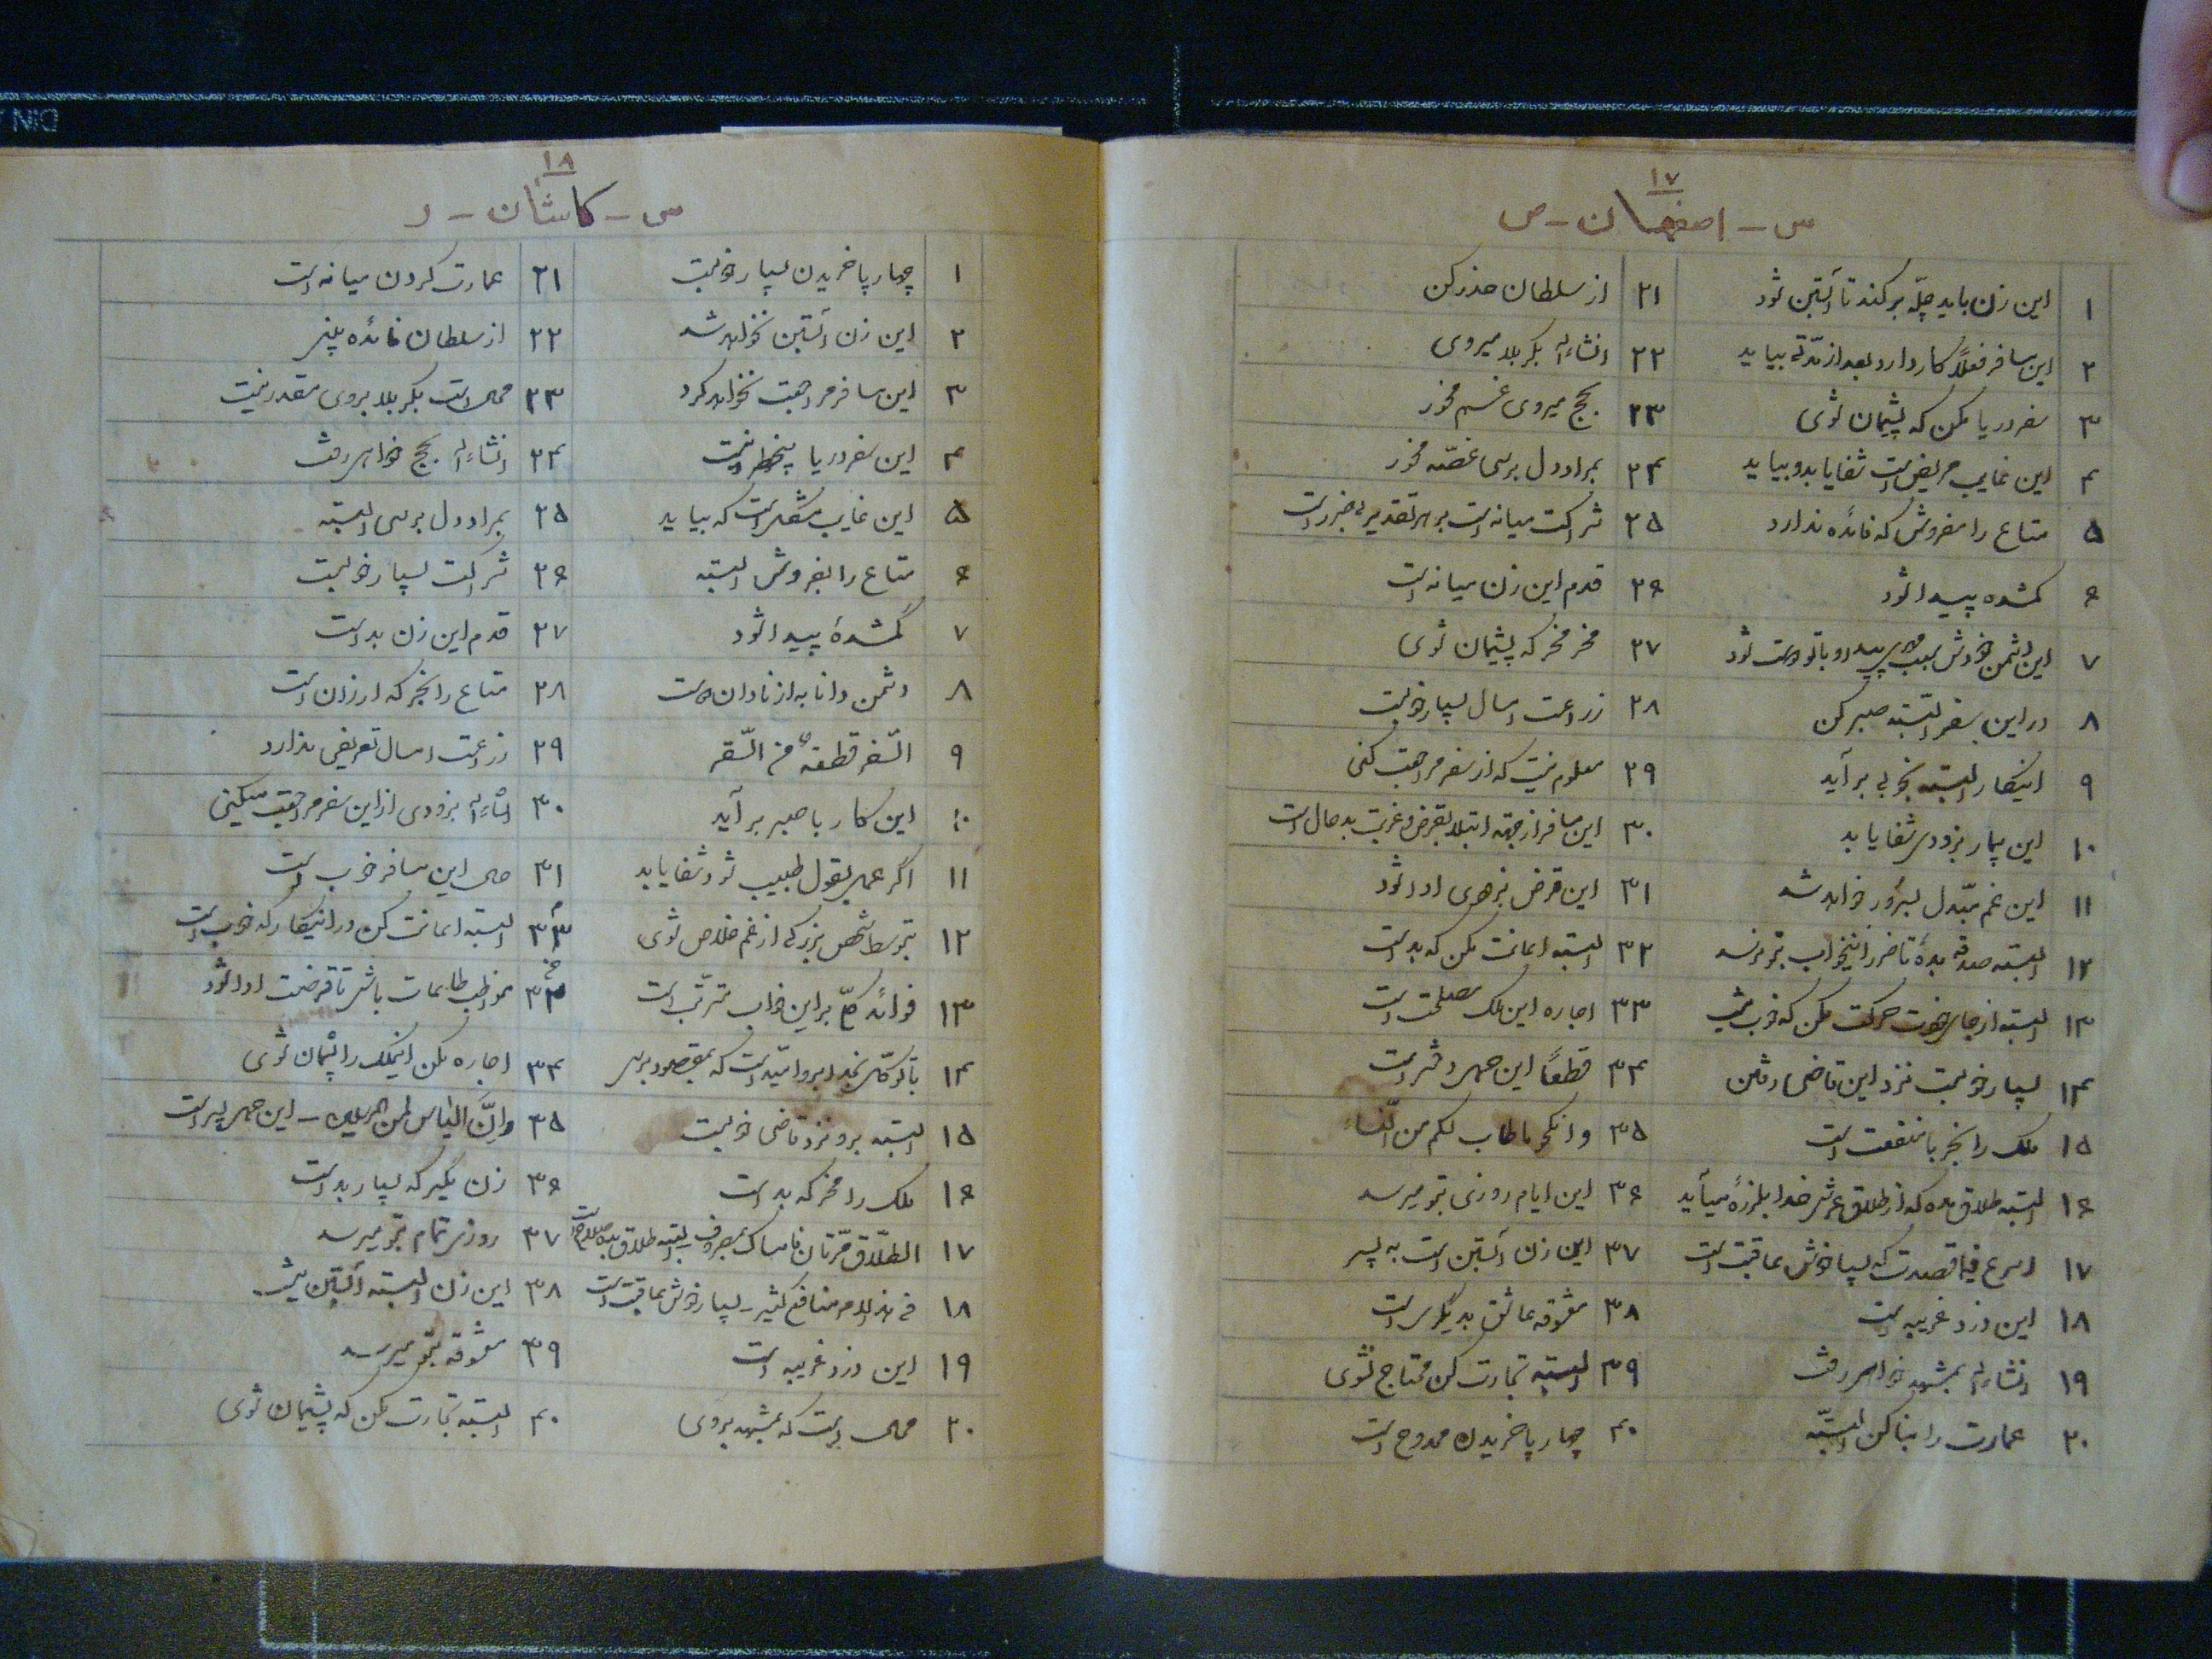 ۱۷
س - اصفهان - ص
۱ این زن باید چلّه بر کند تا آبستن شود
۲ این مسافر فعلاً کار دارد بعد از مدّتی بیاید
۳ سفر دریا مکن که پشیمان شوی
۴ این غایب مریض است شفا یابد و بیاید
۵ متاع را مفروش که فائده ندارد
۶ گمشده پیدا شود
۷ این دشمن خودش بعیب خود رو با تو دوست شود
۸ در این سفر البتّه صبر کن
۹ اینکار البته بخوبی برآید
۱۰ این بیمار بزودی شفا یابد
۱۱ این غم مبّدل بسرور خواهد شد
۱۲ البته صدقه بده تا ضرر اینخواب بتو نرسد
۱۳ البته از جای خودت حرکت مکن که خوب نیست
۱۴ بسیار خوبست نزد این قاضی رفتن
۱۵ ملک را بخر با منفعت است
۱۶ البته طلاق مده که از طلاق عرش خدا بلرزه میآید
۱۷ اسرع فیما قصدت که بسیار خوش عاقبت است
۱۸ این دزد غریبه است
۱۹ انشاءاله بمشهد خواهی رفت
۲۰ عمارت را بنا کن البتّه
۲۱ از سلطان حذر کن
۲۲ انشاءاله بکربلا میروی
۲۳ بحج میروی غم مخور
۲۴ بمراد دل برسی غصّه مخور
۲۵ شراکت میانه است بهر تقدیر بی ضرر است
۲۶ قدم این زن میانه است
۲۷ مخر مخر که پشیمان شوی
۲۸ زراعت امسال بسیار خوبست
۲۹ معلوم نیست که از سفر مراجعت کنی
۳۰ این مسافر از جهته ابتلا بقرض و غربت بد حال است
۳۱ این قرض بزودی ادا شود
۳۲ البته اعانت مکن که بد است
۳۳ اجاره این ملک مصلحت است
۳۴ قطعاً این حمل دختر است
۳۵ وانکحو ما طاب لکم من النّساء
۳۶ این ایام روزی بتو میرسد
۳۷ این زن آبستن است به پسر
۳۸ معشوقه عاشق بدیگری است
۳۹ البته تجارت کن محتاج نشوی
۴۰ چهارپا خریدن ممدوح است
۱۸
س - کاشان - ر
۱ چهارپا خریدن بسیار خوبست
۲ این زن آبستن نخواهد شد
۳ این مسافر مراجعت نخواهد کرد
۴ این سفر دریا بیخطر نیست
۵ این غایب مشکل است که بیاید
۶ متاع را بفروش البته
۷ گمشدهٔ پیدا شود
۸ دشمن دانا به از نادان دوست
۹ السّفر قطعة من السّقر
۱۰ این کار با صبر برآید
۱۱ اگر عمل بقول طبیب شود شفا یابد
۱۲ بتوسط شخص بزرگی از غم خلاص شوی
۱۳ فوائد کلّ بر این خواب مترتّب است
۱۴ با توکّل بخدا برو امّید است که بمقصود برسی
۱۵ البته برو نزد قاضی خوبست
۱۶ ملک را مخر که بد است
۱۷ الطّلاق مرّتان فامساک بمعروف البته طلاق بده صلاح است
۱۸ فی هذا الامر منافع کثیر - بسیار خوش عاقبت است
۱۹ این دزد غریبه است
۲۰ محال است که بمشهد بروی
۲۱ عمارت کردن میانه است
۲۲ از سلطان فائده بینی
۲۳ محال است بکربلا بروی مقدر نیست
۲۴ انشاءاله بحج خواهی رفت
۲۵ بمراد دل برسی البته
۲۶ شراکت بسیار خوبست
۲۷ قدم این زن بد است
۲۸ متاع را بخر که ارزان است
۲۹ زراعت امسال تعریفی ندارد
۳۰ انشاءاله بزودی از این سفر مراجعت میکنی
۳۱ حال این مسافر خوب است
۳۲ البته اعانت کن در اینکار که خوب است
۳۳ مواظب طاعات باش تا قرضت ادا شود
۳۴ اجاره مکن اینملک را پشیمان شوی
۳۵ وانّ الیاس لمن المرسلین - این حمل پسر است
۳۶ زن مگیر که بسیار بد است
۳۷ روزی تمام بتو میرسد
۳۸ این زن البته آبستن نیست
۳۹ معشوقه بتو میرسد
۴۰ البته تجارت مکن که پشیمان شوی